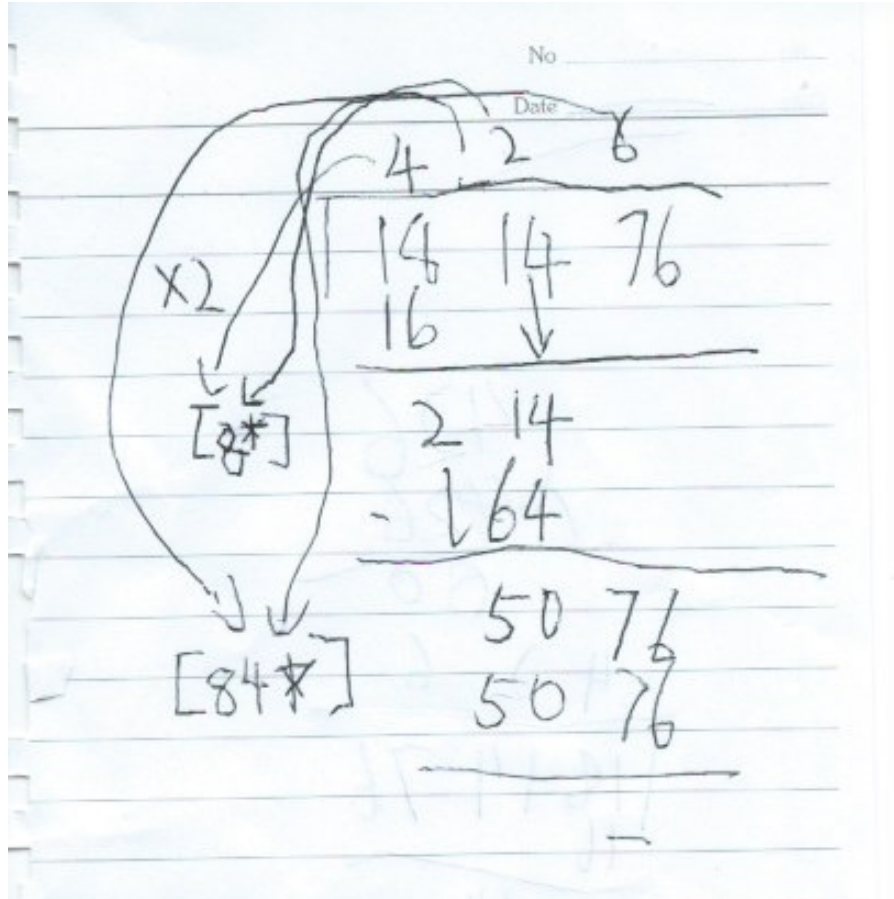 No
Date
4 2 6
18 14 76
×2
16
[8*]
2 14
- 164
50 76
[84*]
50 76
-